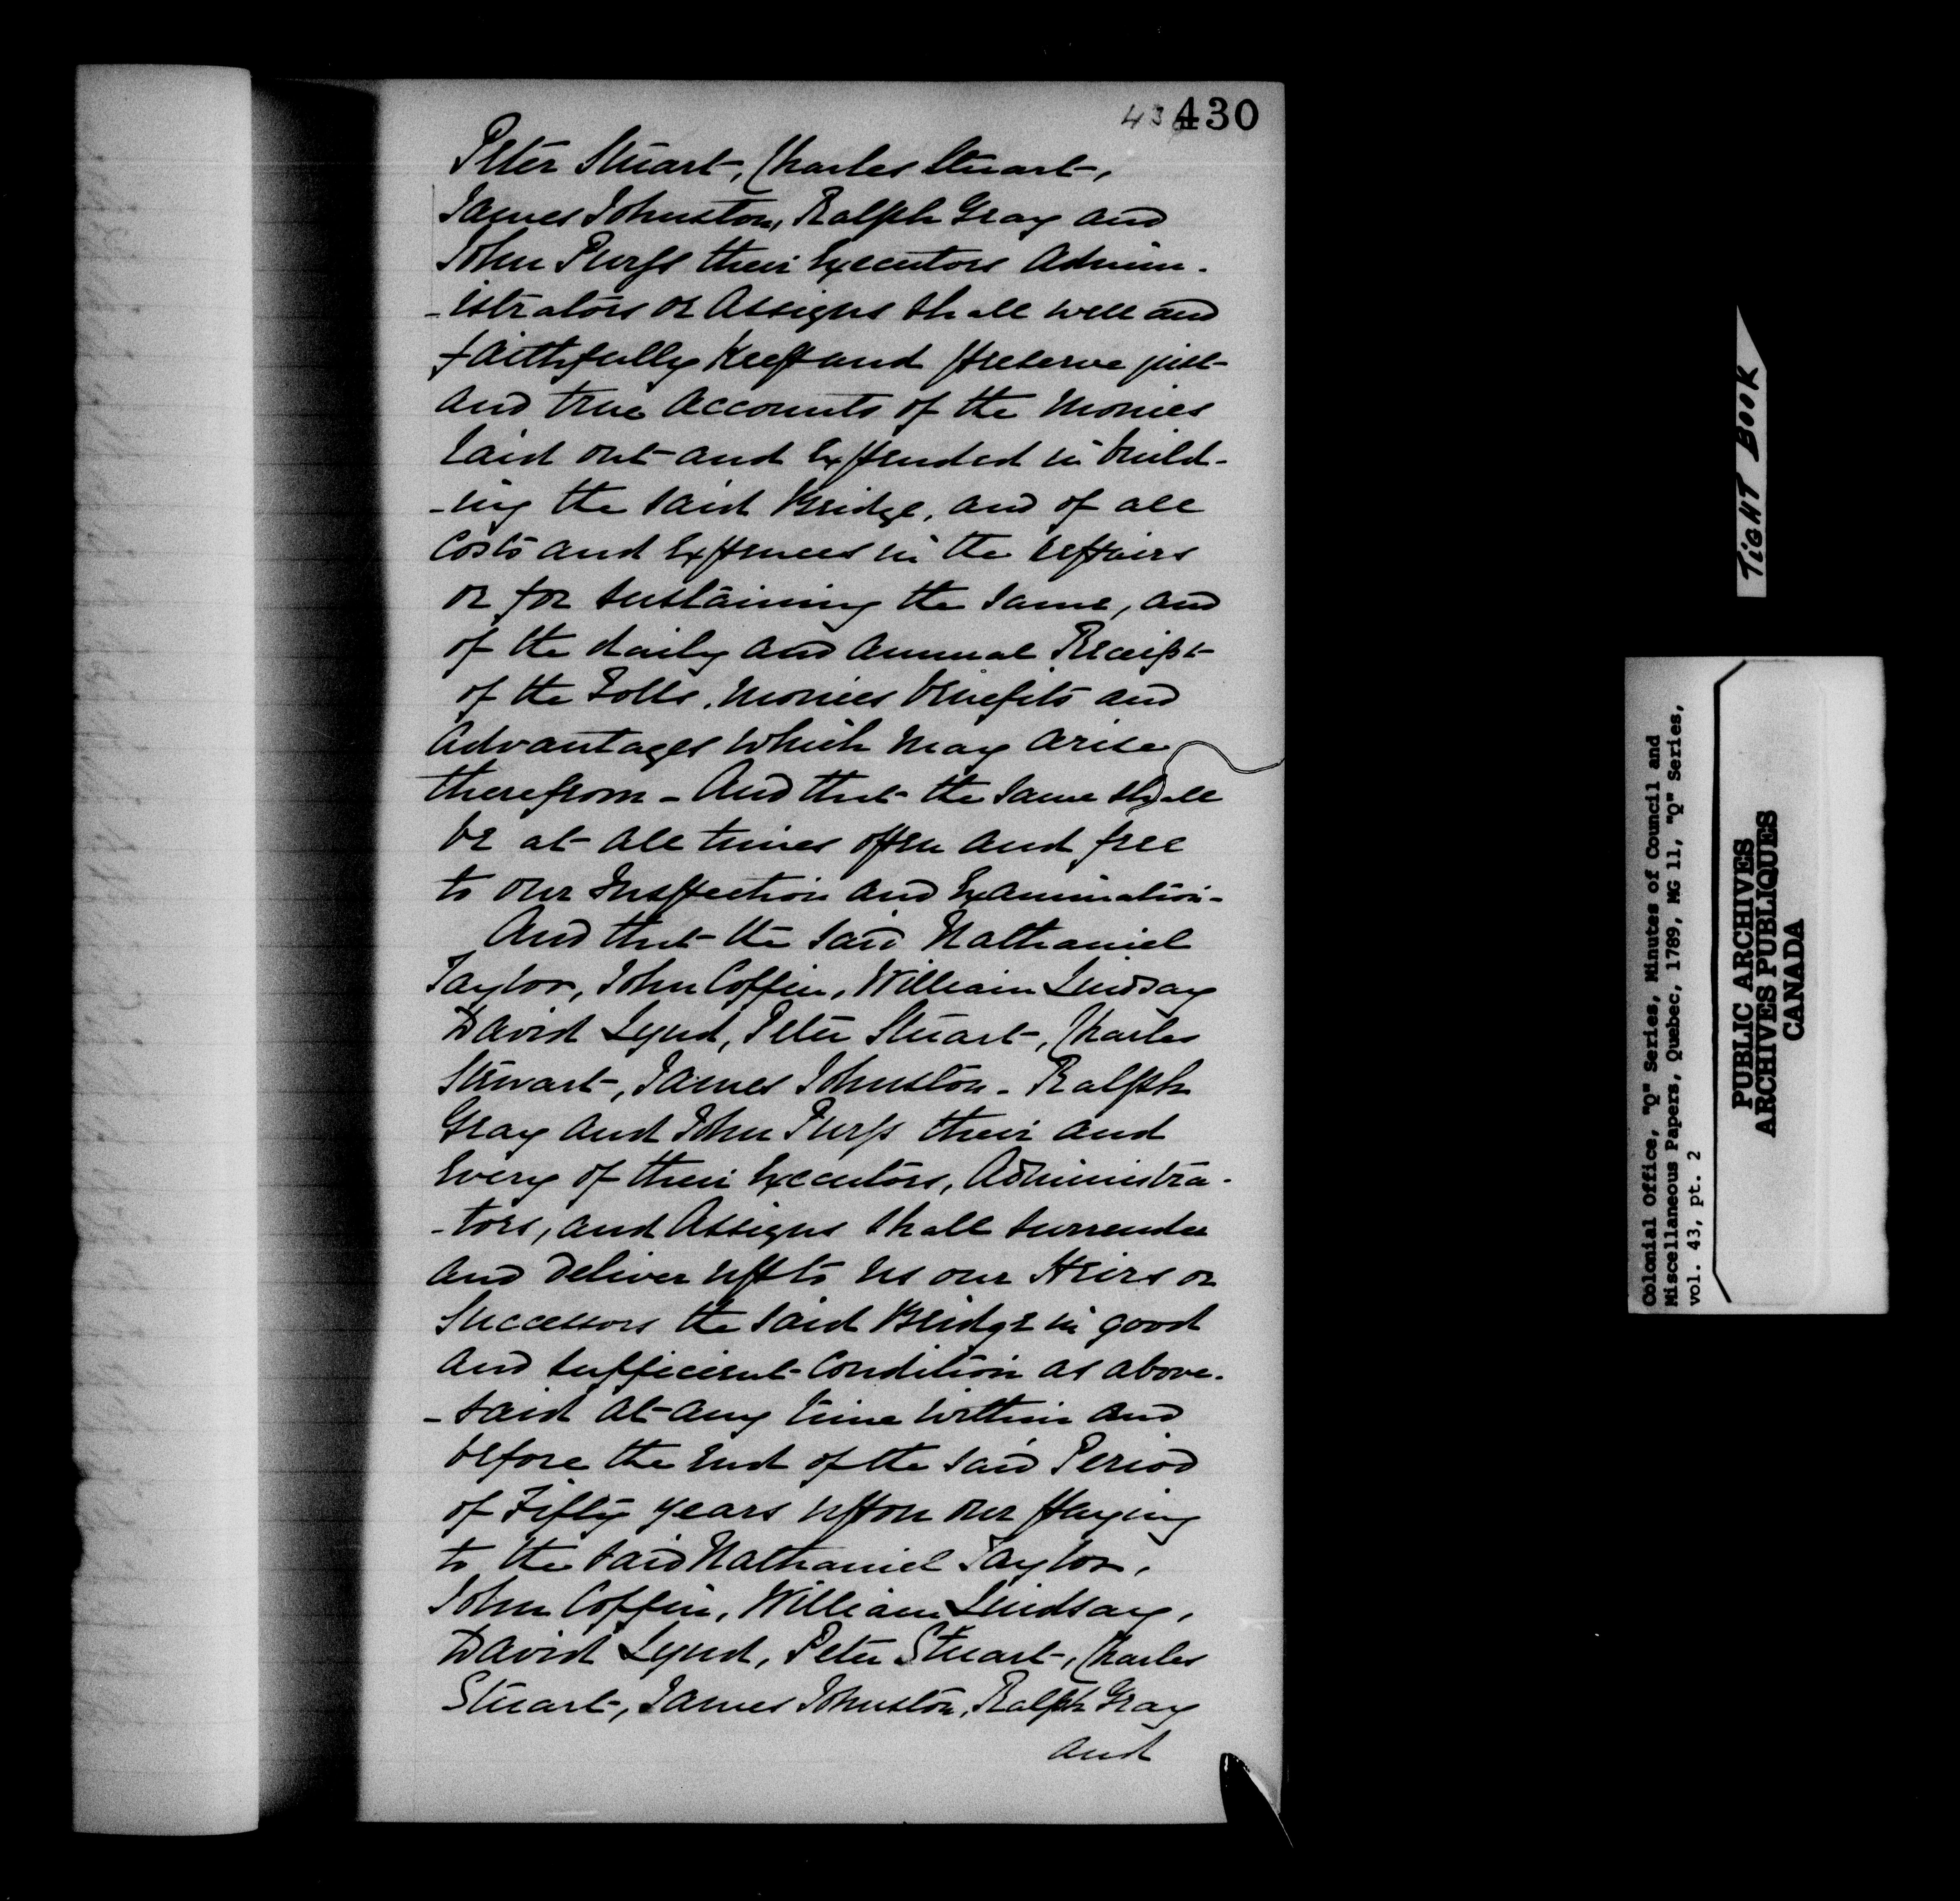 430
Peter Stuart, Charles Stuart,
James Johnston, Ralph Gray and
John Purss their Executors Admin-
-istrators or Assigns shall well and
faithfully keep and preserve just
and true accounts of the Monies
laid out and Expended in build-
-ing the said Bridge, and of all
Costs and Expences in the repairs
or for sustaining the same, and
of the daily and annual Receipt
of the Tolls, Monies benefits and
advantages which may arise
therefrom - And that the same shall
be at all times open and free
to our Inspection and Examination -
And that the said Nathaniel
Taylor, John Coffin, William Lindsay
David Lynd, Peter Stuart, Charles
Stewart, James Johnston - Ralph
Gray and John Purss their and
Every of their Executors, Administra-
-tors, and Assigns shall surrender
and deliver up to us our Heirs or
Successors the said Bridge in good
and sufficient Condition as above-
-said at any time within and
before the End of the said Period
of Fifty years upon our paying
to the said Nathaniel Taylor,
John Coffin, William Lindsay,
David Lynd, Peter Stuart, Charles
Stuart, James Johnston, Ralph Gray
and
TIGHT BOOK
Colonial Office, "Q" Series, Minutes of Council and
Miscellaneous Papers, Quebec, 1789, MG 11, "Q" Series,
vol. 43, pt. 2
PUBLIC ARCHIVES
ARCHIVES PUBLIQUES
CANADA